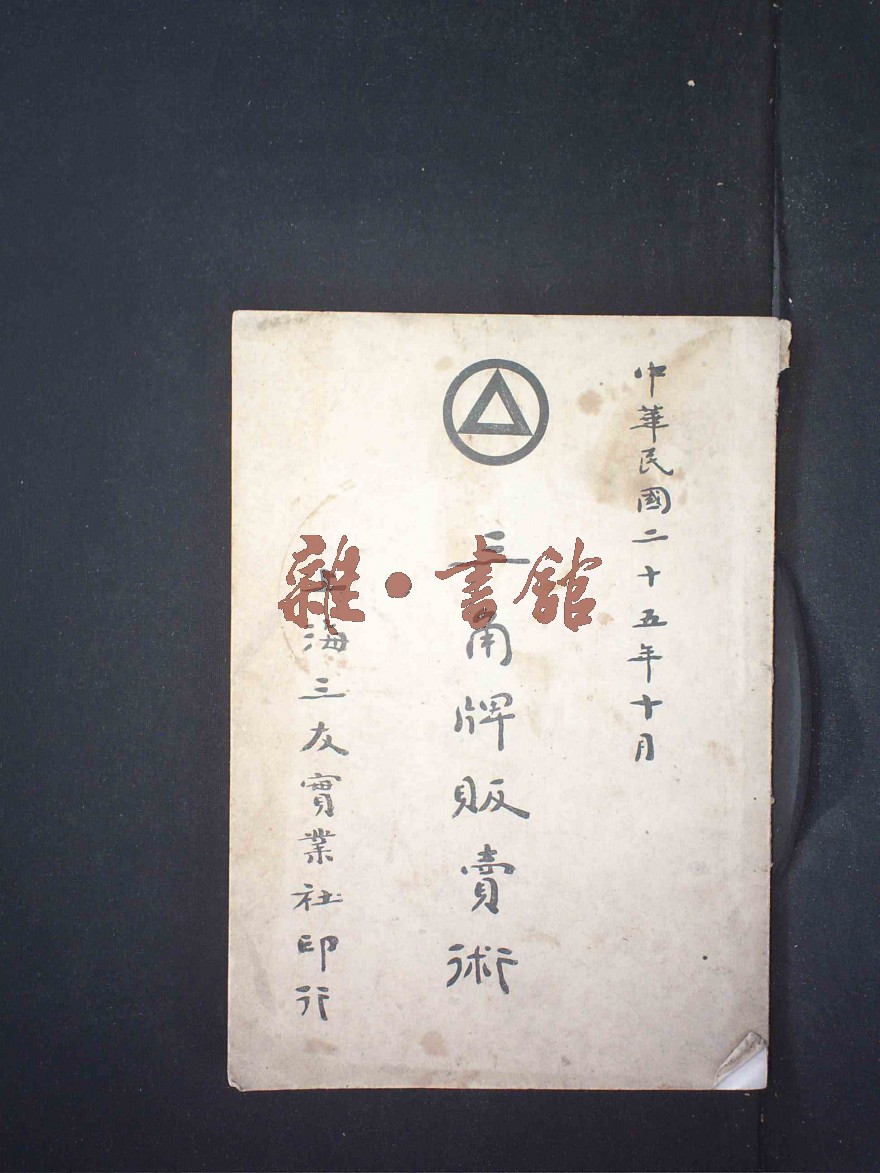 中華民國二十五年十月
三角牌販賣術
上海三友實業社印行
雜·書館